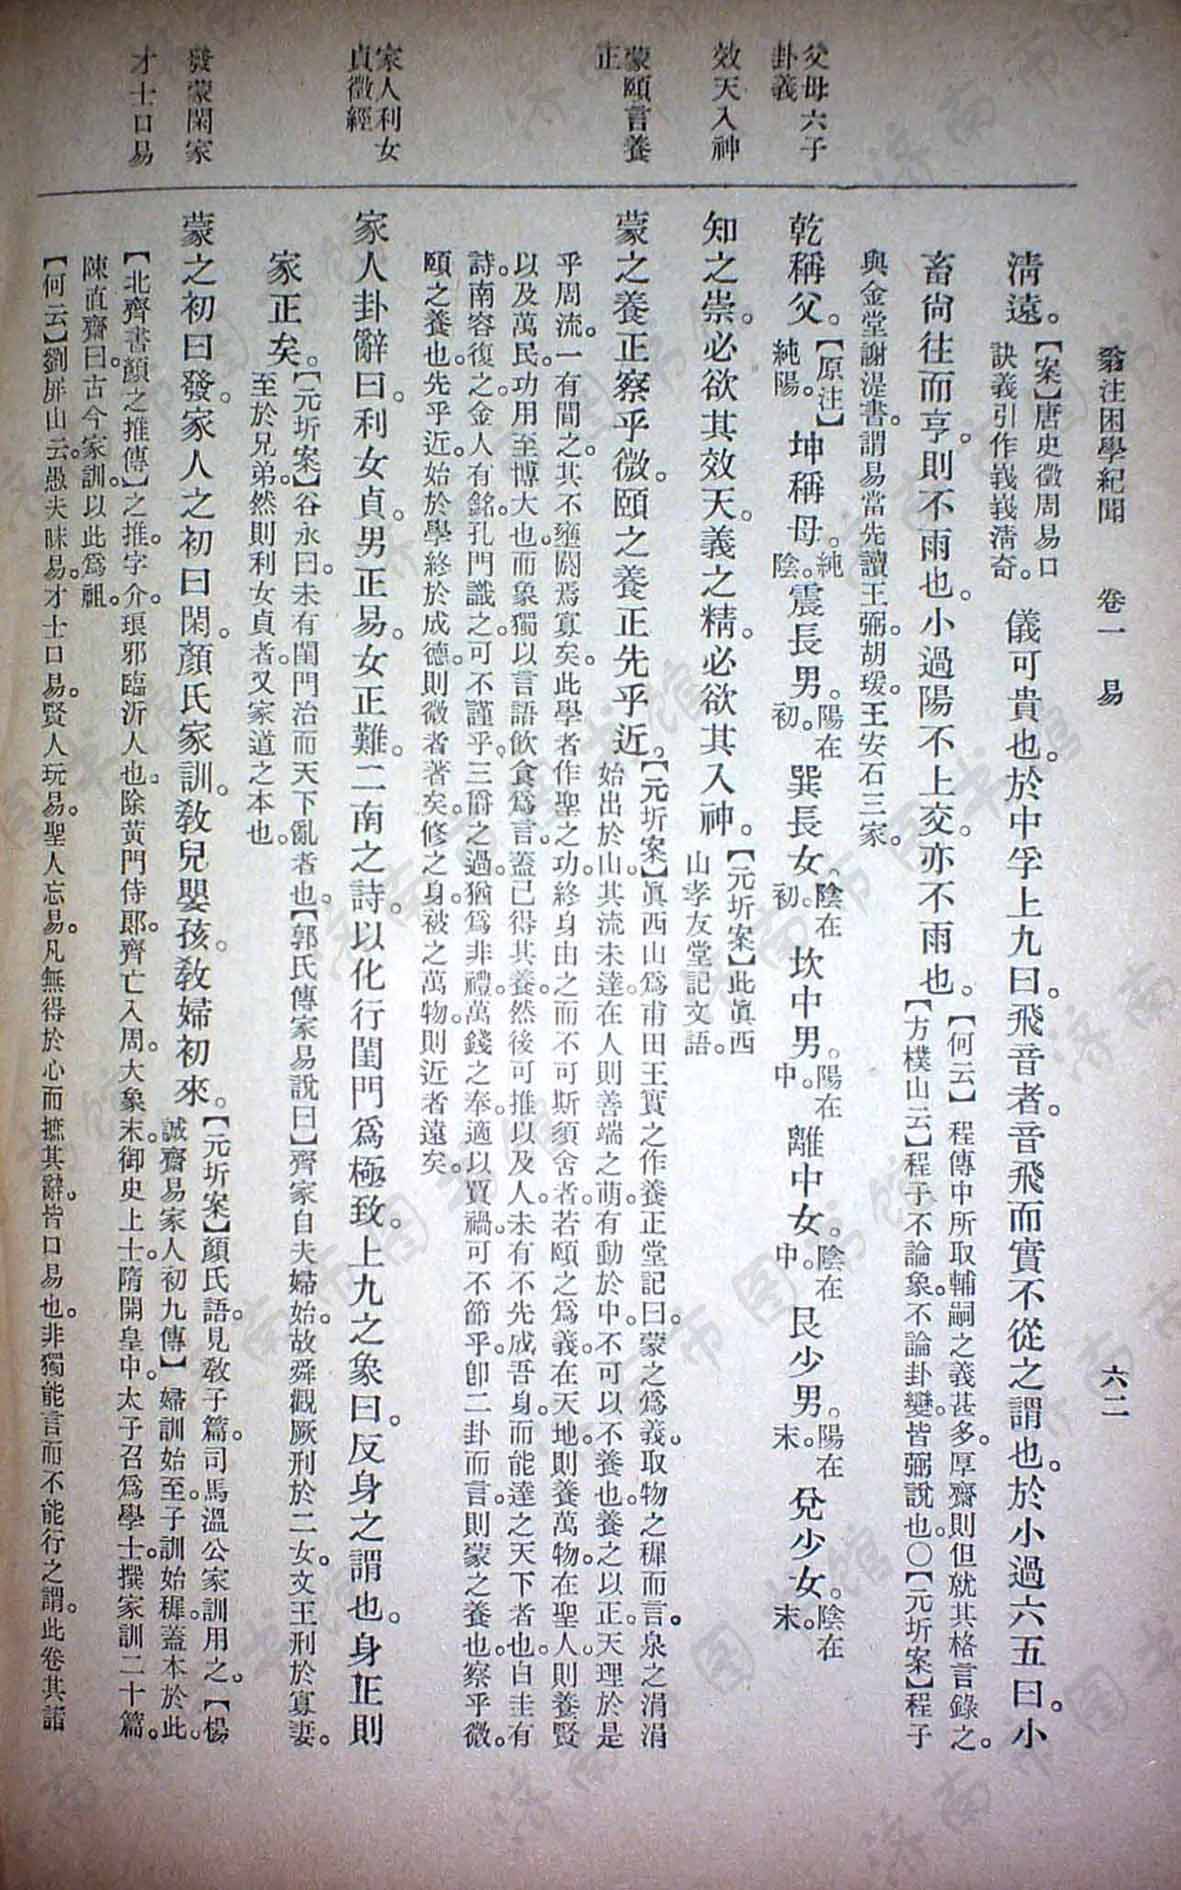 翁注困學紀聞　卷一　易　六二
淸遠。【案】唐史徵周易口
訣義引作峩峩淸奇。
儀可貴也。於中孚上九曰。飛音者。音飛而實不從之謂也。於小過六五曰。小
畜尙往而亨。則不雨也。小過陽不上交。亦不雨也。
【何云】程傳中所取輔嗣之義甚多。厚齋則但就其格言錄之。
【方樸山云】程子不論象。不論卦變。皆弼說也。〇【元圻案】程子
與金堂謝湜書。謂易當先讀王弼。胡瑗。王安石三家。
父母六子
卦義
乾稱父。【原注】純陽。坤稱母。純陰。震長男。陽在初。巽長女。陰在初。坎中男。陽在中。離中女。陰在中。艮少男。陽在末。兌少女。陰在末。
效天入神
知之崇。必欲其效天。義之精。必欲其入神。【元圻案】此眞西
山孝友堂記文語。
蒙頤言養
正
蒙之養正察乎微。頤之養正先乎近。
【元圻案】眞西山爲甫田王實之作養正堂記曰。蒙之爲義。取物之穉而言。泉之涓涓
始出於山。其流未達。在人則善端之萌。有動於中。不可以不養也。養之以正。天理於是
乎周流。一有間之。其不壅閼焉寡矣。此學者作聖之功。終身由之而不可斯須舍者。若頤之爲義。在天地則養萬物。在聖人則養賢
以及萬民。功用至博大也。而象獨以言語飮食爲言。蓋已得其養。然後可推以及人。未有不先成吾身。而能達之天下者也。白圭有
詩。南容復之。金人有銘。孔門識之。可不謹乎。三爵之過。猶爲非禮。萬錢之奉。適以買禍。可不節乎。卽二卦而言。則蒙之養也。察乎微。
頤之養也。先乎近。始於學。終於成德。則微者著矣。修之身。被之萬物。則近者遠矣。
家人利女
貞徵經
家人卦辭曰。利女貞。男正易。女正難。二南之詩。以化行閨門爲極致。上九之象曰。反身之謂也。身正則
家正矣。
【元圻案】谷永曰。未有閨門治而天下亂者也。【郭氏傳家易說曰】齊家自夫婦始。故舜觀厥刑於二女。文王刑於寡妻。
至於兄弟。然則利女貞者。又家道之本也。
發蒙閑家
蒙之初曰發。家人之初曰閑。顏氏家訓。敎兒嬰孩。敎婦初來。
【元圻案】顏氏語。見敎子篇。司馬溫公家訓用之。【楊
誠齋易家人初九傳】婦訓始至。子訓始穉。蓋本於此。
【北齊書顏之推傳】之推。字介。琅邪臨沂人也。除黃門侍郞。齊亡入周。大象末。御史上士。隋開皇中。太子召爲學士。撰家訓二十篇。
陳直齋曰。古今家訓。以此爲祖。
才士口易
【何云】劉屏山云。愚夫昧易。才士口易。賢人玩易。聖人忘易。凡無得於心而摭其辭。皆口易也。非獨能言而不能行之謂。此卷其諸